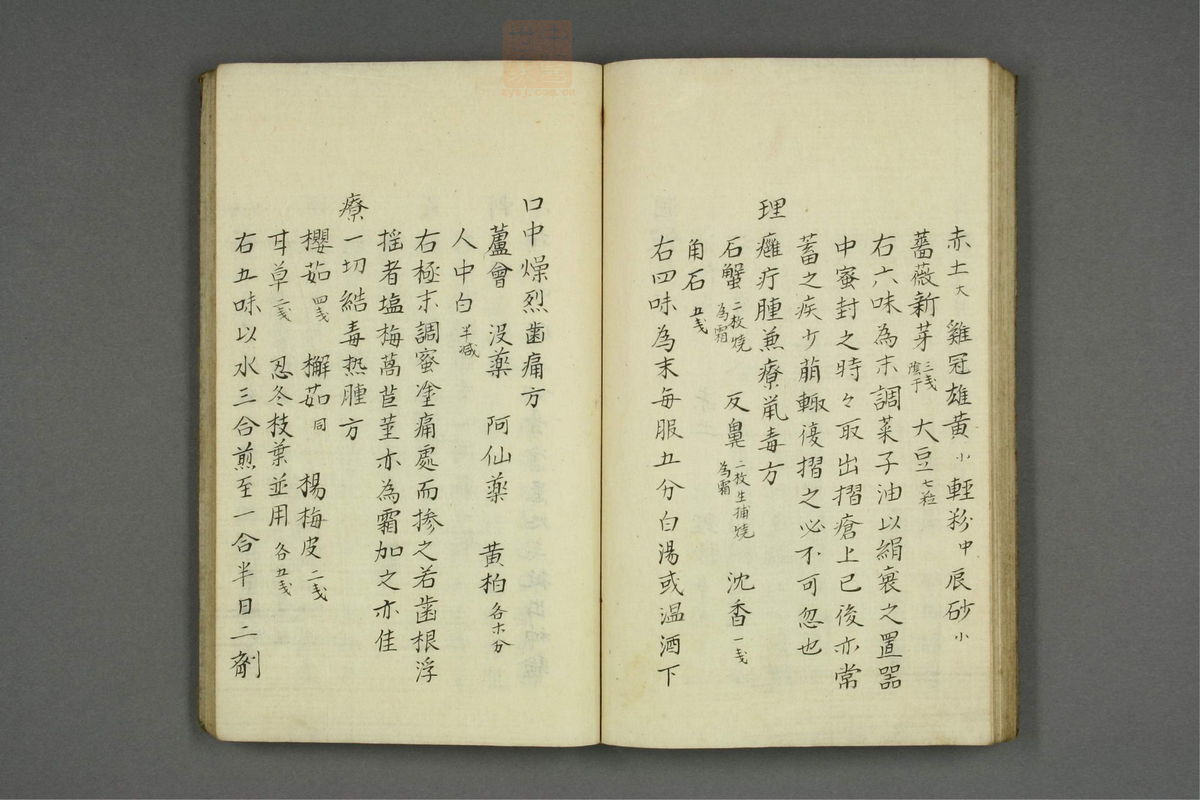 赤土大　雞冠雄黃小　輕粉中　辰砂小
薔薇新芽三戔陰干　大豆七粒
右六味為末調菜子油以絹裹之置器
中蜜封之時々取出摺瘡上已後亦常
蓄之疾少萠輙復摺之必不可忽也
理癰疔腫兼療䑕毒方
石蟹二枚燒為霜　反鼻二枚生捕燒為霜　沈香一戔
角石五戔
右四味為末每服五分白湯或温酒下
口中燥烈歯痛方
蘆會　沒藥　阿仙藥　黄柏各六分
人中白半减
右極末調蜜塗痛處而摻之若歯根浮
揺者塩梅萵苣莖亦為霜加之亦佳
療一切結毒热腫方
櫻茹四戔　檞茹同　楊梅皮二戔
甘草戔　忍冬枝葉並用各五戔
右五味以水三合煎至一合半日二劑